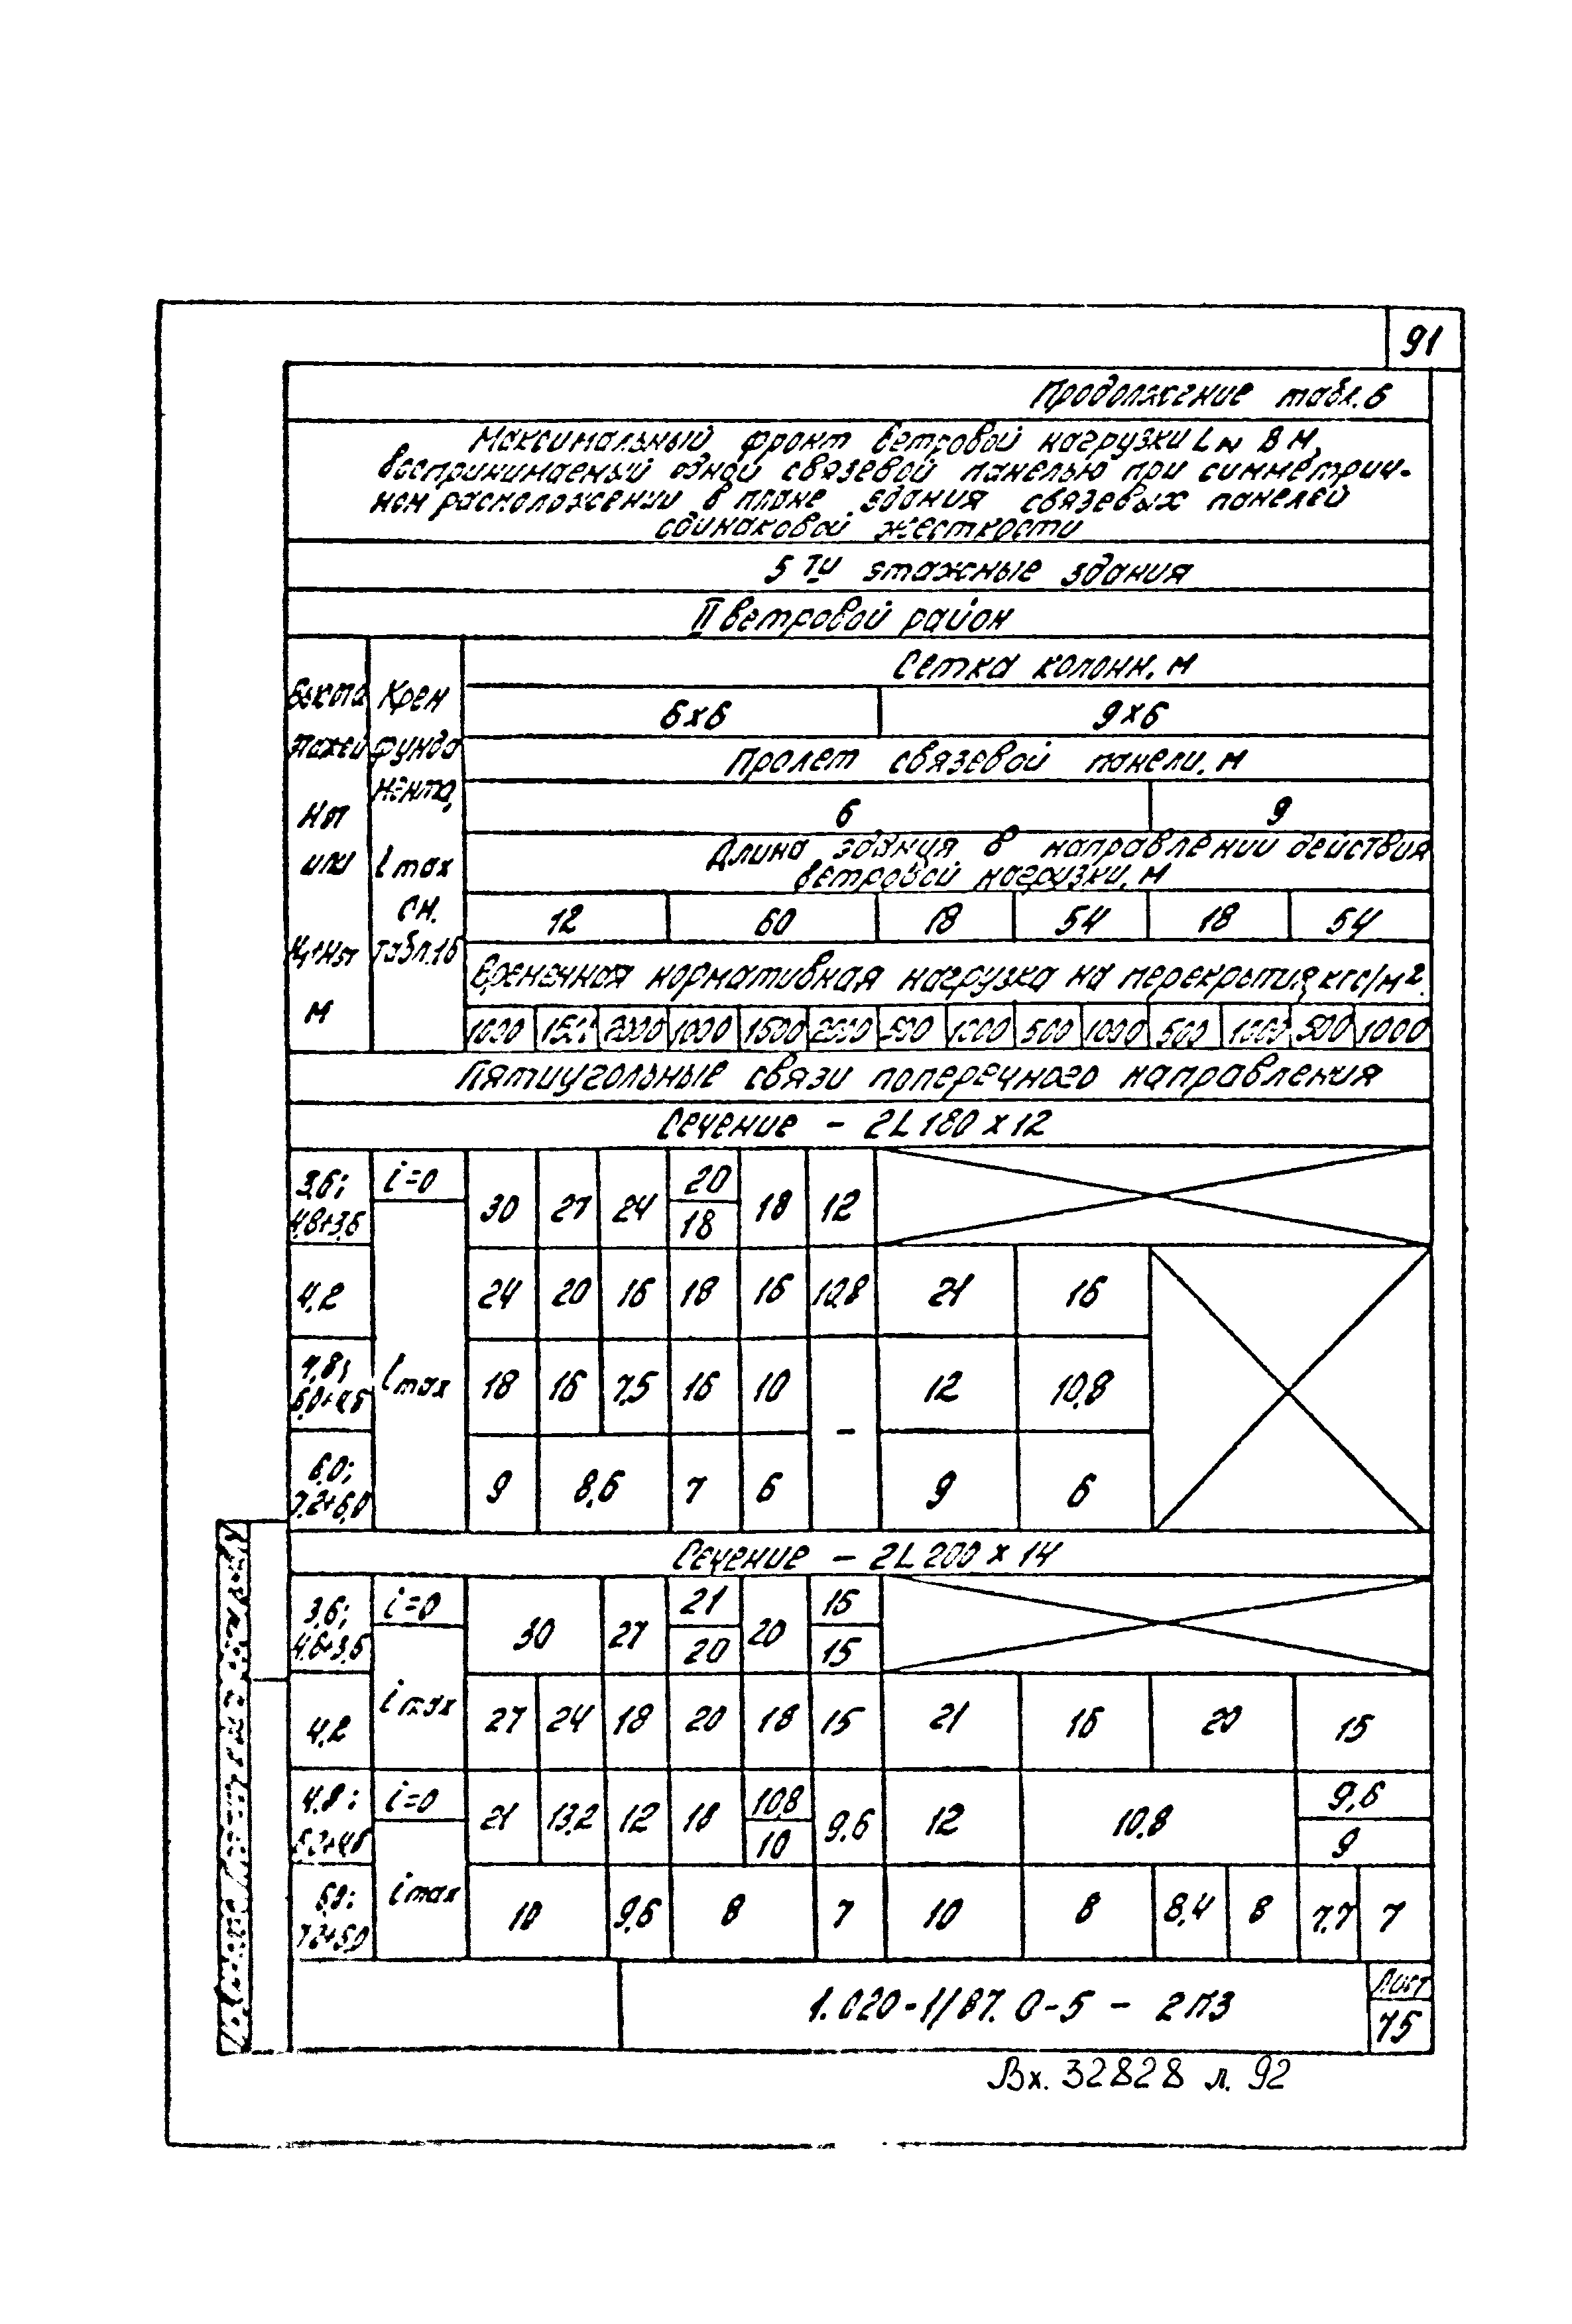 91
Продолжение табл. 6
Максимальный фронт ветровой нагрузки Lw в м,
воспринимаемый одной связевой панелью при симметрич-
ном расположении в плане здания связевых панелей
одинаковой жесткости
5ти этажные здания
II ветровой район
Высота этажей Нэт или Н1+Нэт м
Крен фундамента, imax см. табл. 16
Сетка колонн, м
6х6 9х6
Пролет связевой панели, м
6 9
Длина здания в направлении действия
ветровой нагрузки, м
12 60 18 54 18 54
Временная нормативная нагрузка на перекрытия, кгс/м².
1000 1500 2000 1000 1500 2000 500 1000 500 1000 500 1000 500 1000
Пятиугольные связи поперечного направления
Сечение - 2L 180 x 12
3,6; 4,8+3,6 i=0 30 27 24 20/18 18 12
4,2 imax 24 20 16 18 16 10,8 21 16
4,8; 6,0+4,8 18 16 7,5 16 10 - 12 10,8
6,0; 7,2+6,0 9 8,6 7 6 9 6
Сечение - 2L 200 x 14
3,6; 4,8+3,6 i=0 30 27 21/20 20 16/15
4,2 imax 27 24 18 20 18 15 21 16 20 15
4,8; i=0 21 13,2 12 18 10,8/10 9,6 12 10,8 9,6/9
6,0; 7,2+6,0 imax 10 9,6 8 7 10 8 8,4 8 7,7 7
1.020-1/87. 0-5 - 2ПЗ
Лист
75
Вх. 32828 л. 92